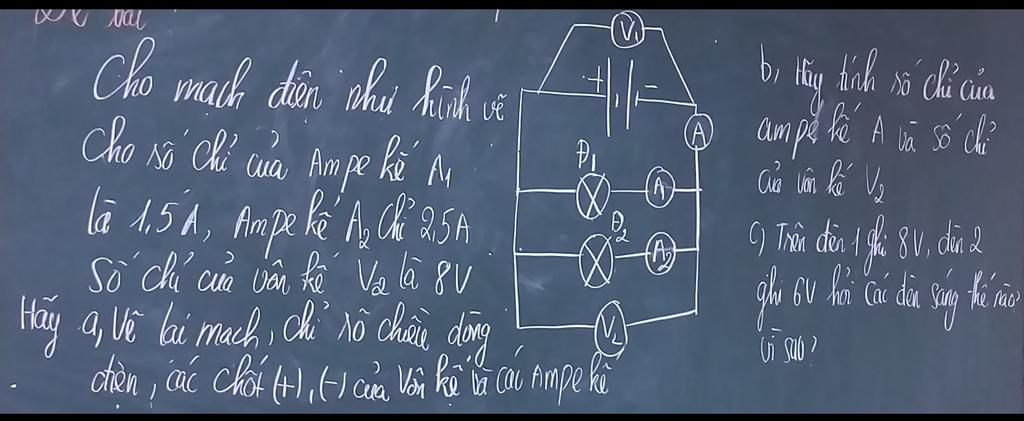 Đề bài
Cho mạch điện như hình vẽ
Cho số chỉ của Ampe kế A1
là 1,5A, Ampe kế A2 chỉ 2,5A
Số chỉ của vôn kế V2 là 8V
Hãy a, Vẽ lại mạch, chỉ rõ chiều dòng
điện, các chốt (+), (-) của Vôn kế và các Ampe kế
V1
+ -
A
Đ1
A1
Đ2
A2
V2
b, Hãy tính số chỉ của
ampe kế A và số chỉ
của vôn kế V2
c) Trên đèn 1 ghi 8V, đèn 2
ghi 6V hỏi các đèn sáng thế nào?
Vì sao?